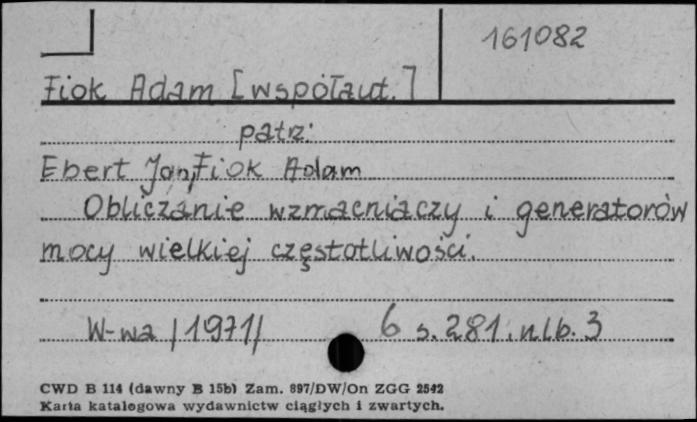 161082
Fiok Adam [współaut.]
patrz:
Ebert Jan, Fiok Adam
Obliczanie wzmacniaczy i generatorów
mocy wielkiej częstotliwości.
W-wa /1971/ 6 s. 281, nlb. 3
CWD B 114 (dawny B 15b) Zam. 897/DW/On ZGG 2542
Karta katalogowa wydawnictw ciągłych i zwartych.